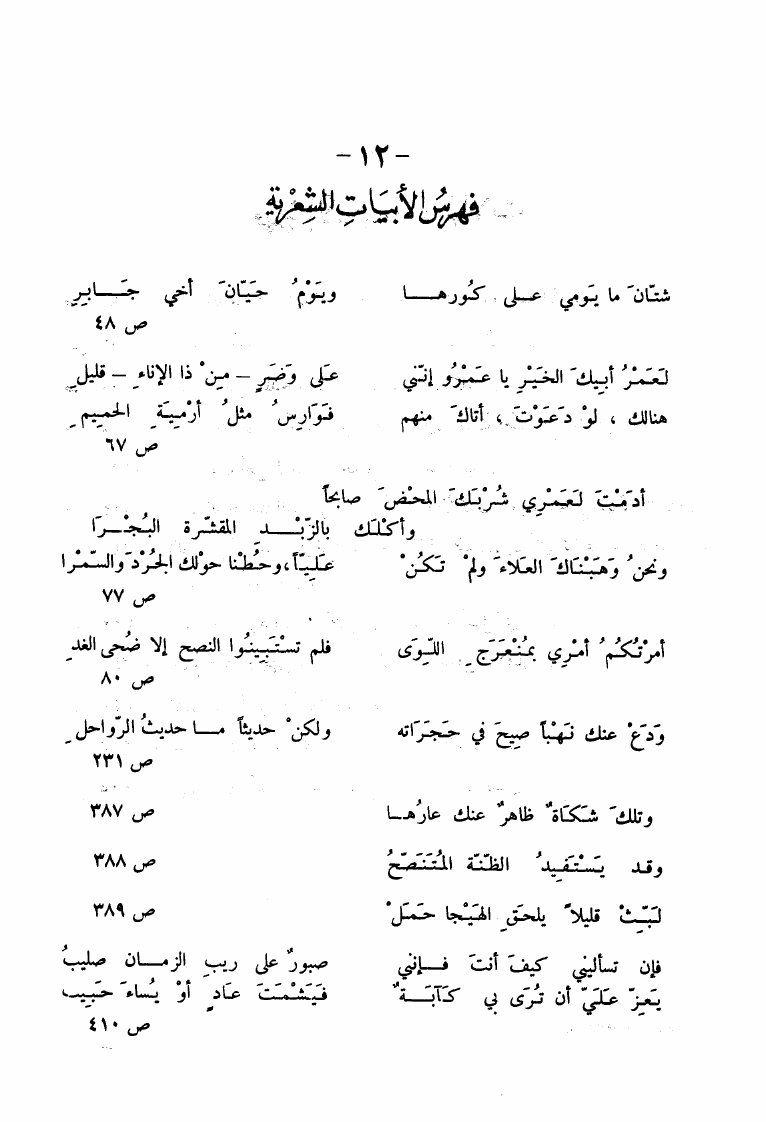 - ١٢ -
فهرسُ الأبيَاتِ الشِعْرية
شتّانَ ما يَومي عـلى كُورهـا ويَوْمُ حَيّانَ أخي جَـابرِ
ص ٤٨
لَعَمْرُ أبيكَ الخَيْرِ يا عَمْرُو إنّني عَلى وَضَرٍ – مِنْ ذا الإناءِ – قليلِ
هنالك ، لوْ دَعَوْتَ ، أتاكَ منهم فَوَارِسُ مثلُ أرْمِيَةِ الحَميمِ
ص ٦٧
أدَمْتَ لَعَمْرِي شُرْبَكَ المحْضَ صابحاً
وأكْلَكَ بالزّبْـدِ المقشّرة البُجْـرَا
ونحنُ وَهَبْنَاكَ العَلاءَ ولمْ تَكُنْ عَلِيّاً،وحُطْنا حوْلك الجُرْدَ والسّمْرا
ص ٧٧
أمرْتُكُمُ أمْرِي بمُنْعَرَجِ اللّوَى فلم تسْتَبِينُوا النصح إلا ضُحى الغدِ
ص ٨٠
وَدَعْ عنك نَهْباً صِيحَ في حَجَرَاته ولكنْ حديثاً مـا حديثُ الرّواحلِ
ص ٢٣١
وتلكَ شَكَاةٌ ظاهرٌ عنك عارُهـا ص ٣٨٧
وقـد يَسْتَفيدُ الظّنّة المُتَنَصّحُ ص ٣٨٨
لَبِّثْ قليلاً يلحقِ الهَيْجا حَمَلْ ص ٣٨٩
فإن تسأليني كيفَ أنتَ فـإنني صبورٌ على ريبِ الزمـان صليبُ
يَعِزّ عَلَيّ أن تُرَى بي كَآبَـةٌ فَيَشْمَتَ عَادٍ أوْ يُساءَ حَبِيب
ص ٤١٠